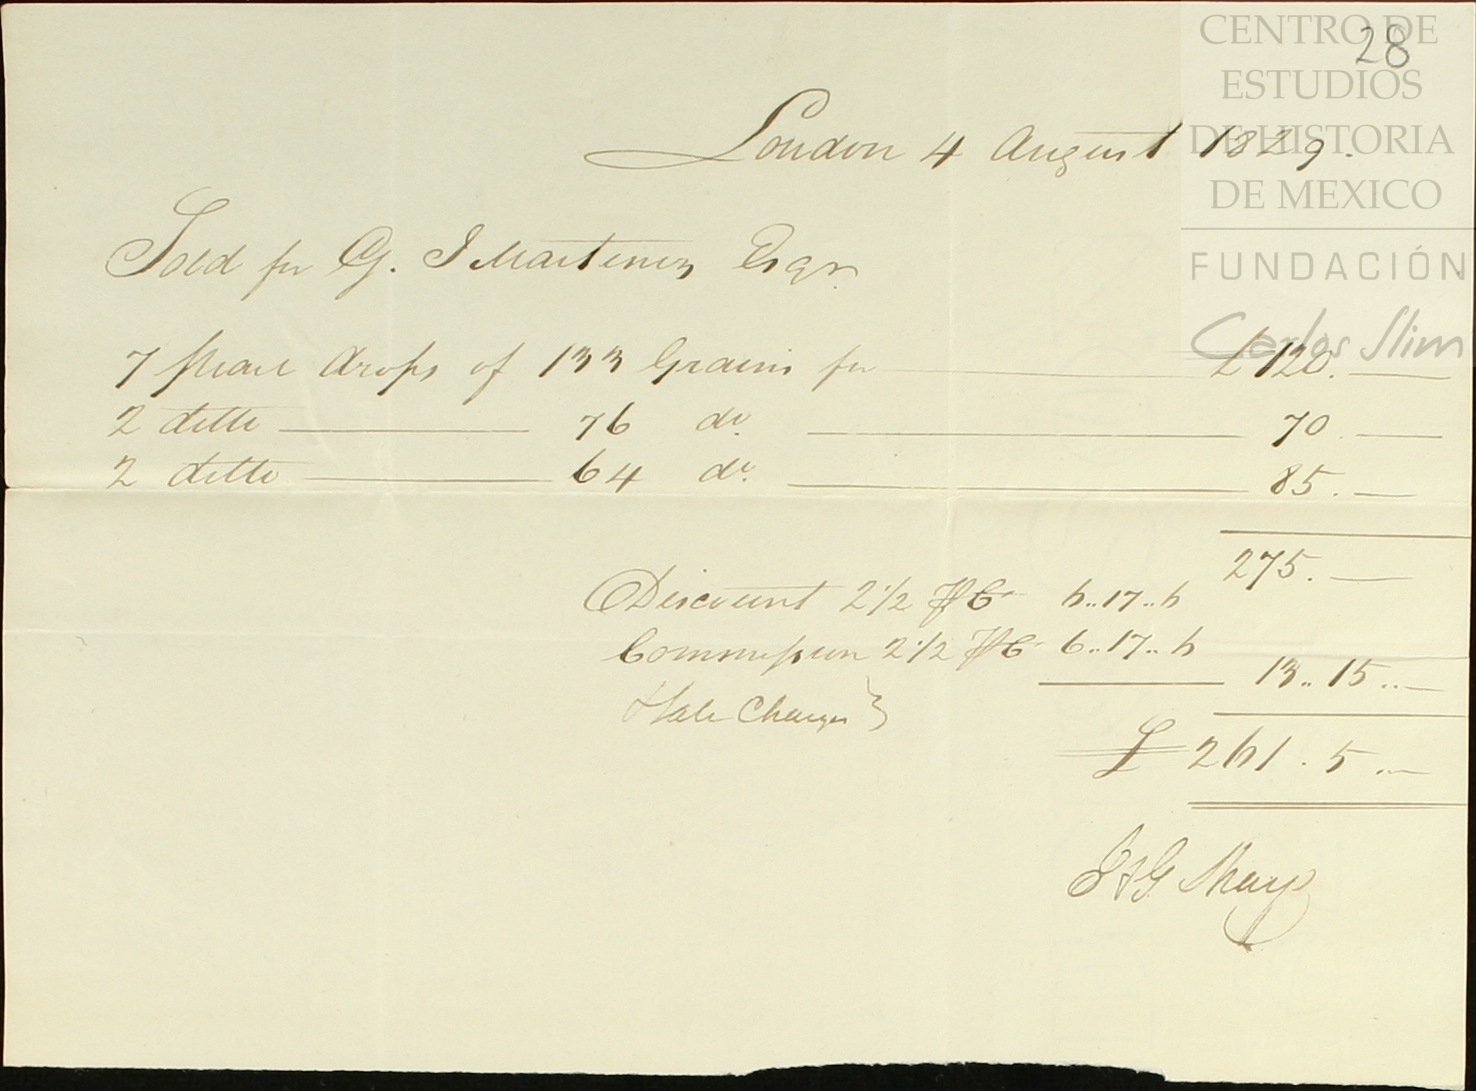 CENTRO DE
28
ESTUDIOS
DE HISTORIA
DE MEXICO
FUNDACIÓN
Carlos Slim
London 4 August 1829.
Sold for G. J Martinez Esqr.
7 Pearl drops of 133 Grains for £120. —
2 ditto — 76 do. — 70. —
2 ditto — 64 do. — 85. —
275. —
Discount 2 1/2 P C 6..17..6
Commission 2 1/2 P C 6..17..6
13..15..—
& Sale Charges }
£ 261. 5..—
J & G Sharp